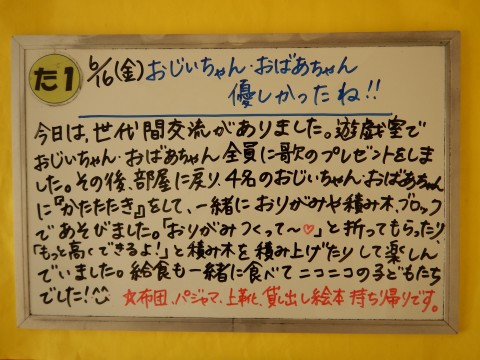 た1
6/16(金)おじいちゃん・おばあちゃん
優しかったね!!
今日は、世代間交流がありました。遊戯室で
おじいちゃん・おばあちゃん全員に歌のプレゼントをしま
した。その後、部屋に戻り、4名のおじいちゃん・おばあちゃん
に『かたたたき』をして、一緒におりがみや積み木、ブロック
であそびました。「おりがみつくって〜♡」と折ってもらったり
「もっと高くできるよ!」と積み木を積み上げたりして楽しん
でいました。給食も一緒に食べてニコニコの子どもたち
でした!^^
☆布団、パジャマ、上靴、貸し出し絵本 持ち帰りです。